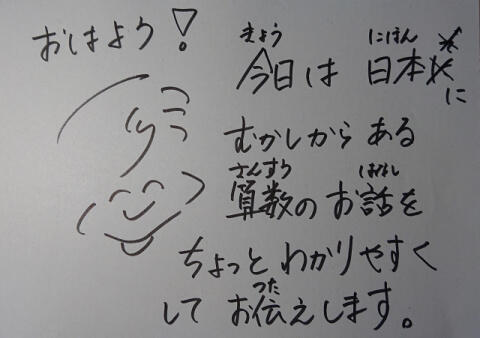 おはよう！
きょう にほん
今日は 日本に
むかしから ある
さんすう はなし
算数の お話を
ちょっと わかりやすく
つた
して お伝えします。